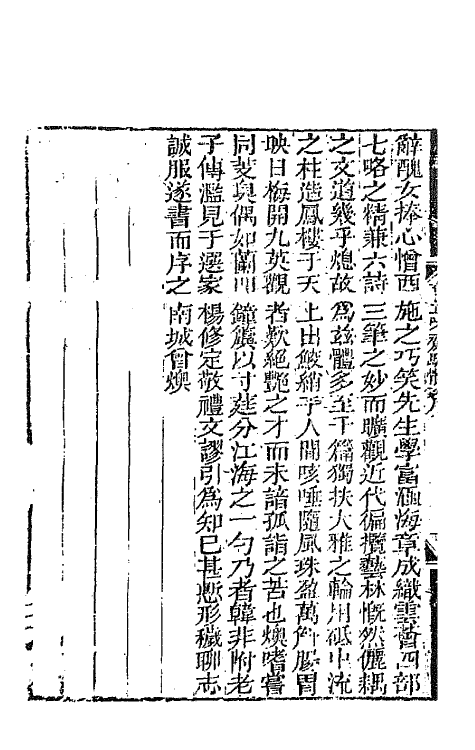 辭醜女捧心憎西施之巧笑先生學富涵海章成織雲薈四部
七略之精兼六詩三筆之妙而曠觀近代徧攬藝林慨然儷耦
之文道幾乎熄故爲茲體多至千篇獨扶大雅之輪用砥中流
之柱造鳳樓于天上出鮫綃于人間咳唾隨風珠盈萬斛腸胃
映日梅開九英觀者歎絕艷之才而未諳孤詣之苦也燠嗜嘗
同芰臭偶如蘭叩鐘簴以寸莛分江海之一勺乃者韓非附老
子傳濫見于選家楊修定敬禮文謬引爲知已甚慙形穢聊志
誠服遂書而序之南城曾燠